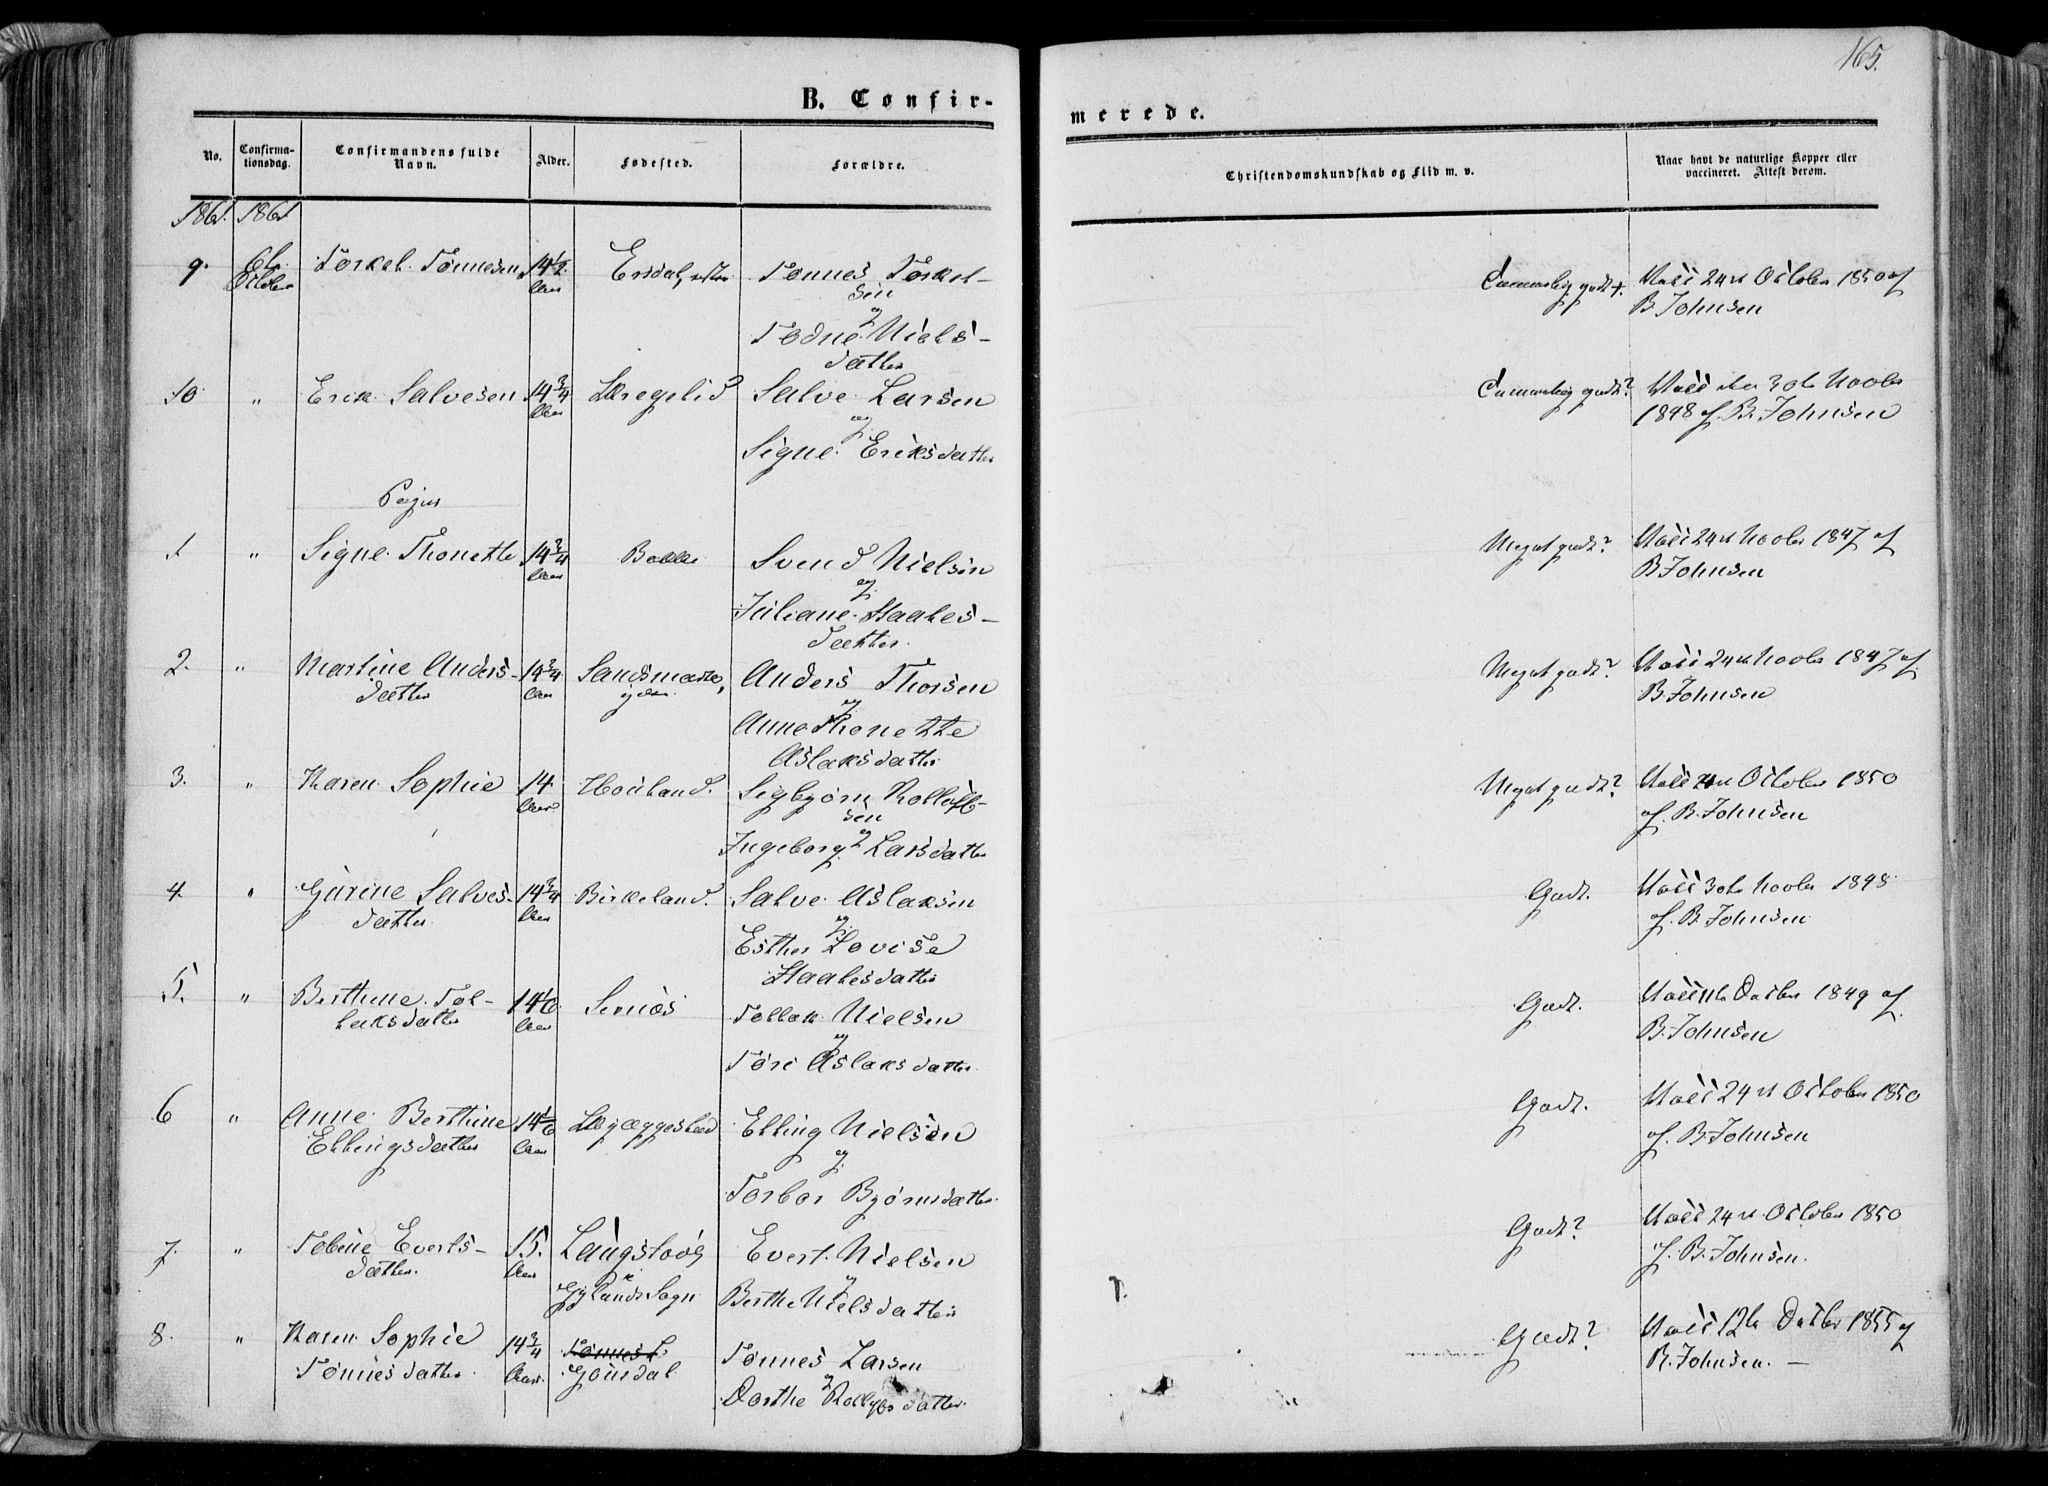 165.
B. Confir-
merede.
No.
Confirma-
tionsdag.
Confirmandens fulde
Navn.
Alder.
Fødested.
Forældre.
Christendomskundskab og Flid m. v.
Naar havt de naturlige Kopper eller
vaccineret. Attest derom.
1861. 1861
9. 6te October Torkel Tønnesen 14½ Aar Ersdal Tønnes Torkel-
sen
og
Todne Niels-
datter
Vacc 24de October 1850 af
B Johnsen
10 " Erik Salvesen 14¾ Aar Skregelid Salve Larsen
og
Signe Eriksdatter
Vacc den 3die Novbr
1848 af B. Johnsen
Piger
1 " Signe Thonette 14¾ Aar Svend Nielsen
og
Juliane Haakes-
datter
Meget godt? Vacc 24de Novbr 1847 af
B Johnsen
2. " Martine Anders-
datter 14¾ Aar Anders Thorsen
og
Anne Thonette
Aslaksdatter
Meget godt? Vacc 24de Novbr 1847 af
B. Johnsen
3. " Karen Sophie 14 Aar Houland. Sigbjørn Rollof-
sen
og
Ingeborg Larsdatter
Meget godt? Vacc 24de October 1850
af B. Johnsen
4 " Gurine Salves-
datter 14¾ Aar Birkeland. Salve Aslaksen
og
Esther Lovise
Haakesdatter
Godt. Vacc 3die Novbr 1848
af B Johnsen
5. " Berthine Tol-
laksdatter 14 1/6 Aar Sirnæs Tollak Nielsen
og
Tøri Aslaksdatter
Godt. Vacc 11te Decbr 1849 af
B. Johnsen
6 " Anne Berthine
Ellingsdatter 14 1/6 Aar Skjæggestad Elling Nielsen
og
Torbor Bjørnsdatter
Godt. Vacc 24de October 1850
af B. Johnsen
7. " Tobine Everts-
datter. 15. Aar
Gylands Sogn Evert Nielsen
og
Berthe Nielsdatter
Godt? Vacc 24de October 1850
af B. Johnsen.
8. " Karen Sophie
Tønnesdatter 14¾ Aar. Tønnes Larsen
og
Dorthe
Godt? Vacc 12te Decbr 1855 af
B. Johnsen. —